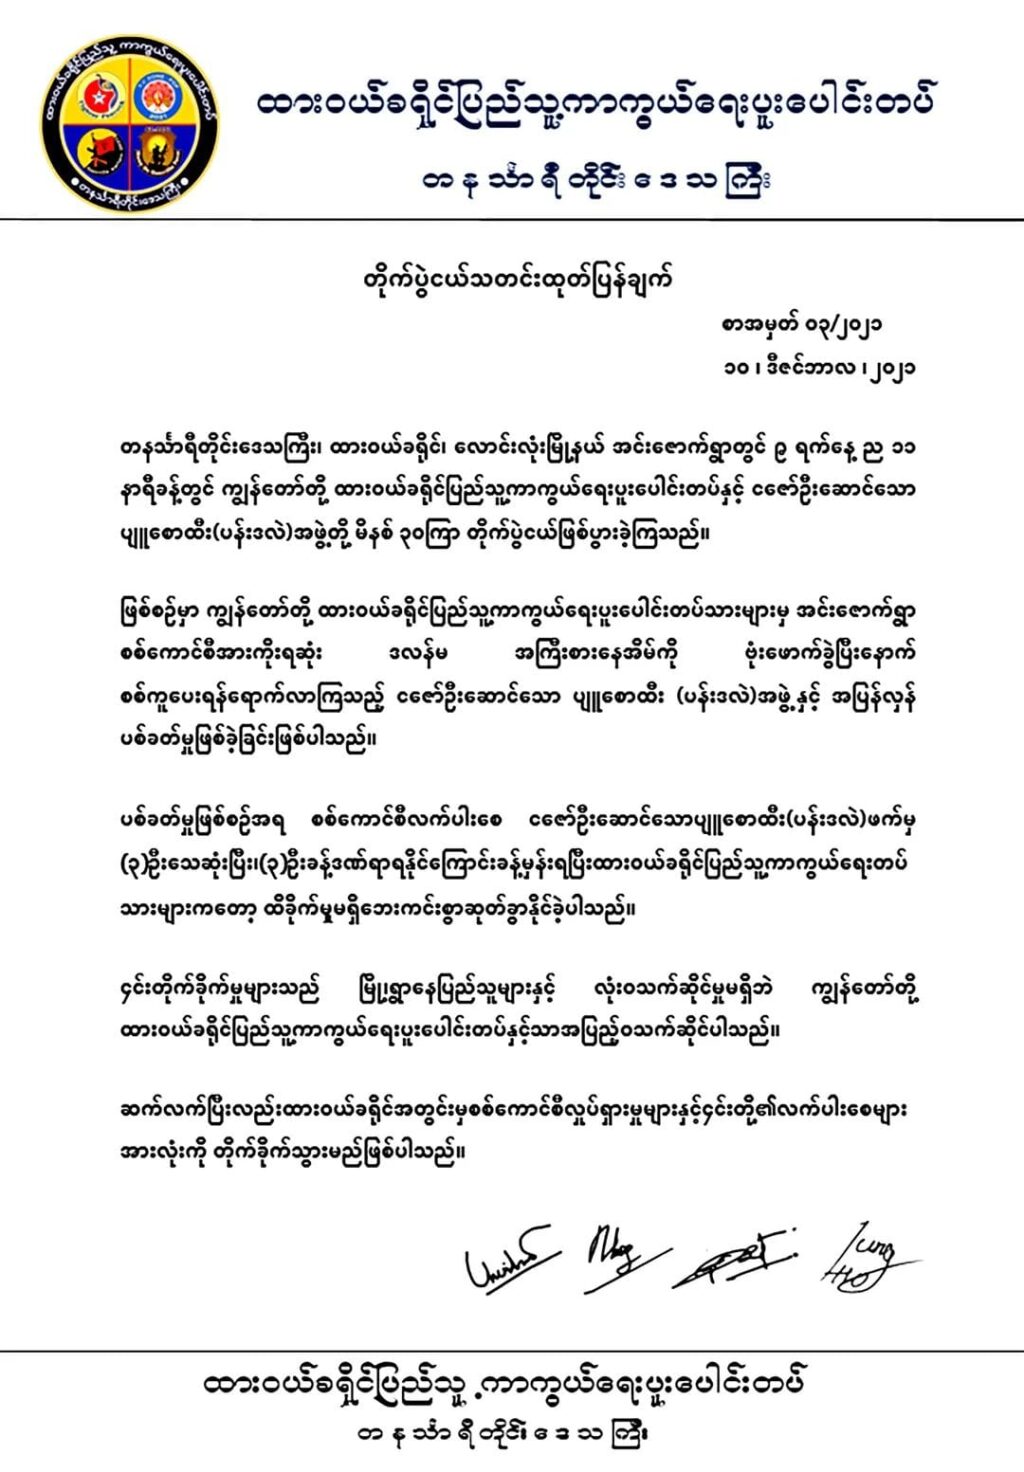 ထားဝယ်ခရိုင်ပြည်သူ့ကာကွယ်ရေးပူးပေါင်းတပ်
တနင်္သာရီတိုင်းဒေသကြီး
ထားဝယ်ခရိုင်ပြည်သူ့ ကာကွယ်ရေးပူးပေါင်းတပ်
တနင်္သာရီတိုင်းဒေသကြီး
တိုက်ပွဲငယ်သတင်းထုတ်ပြန်ချက်
စာအမှတ် ၀၃/၂၀၂၁
၁၀ ၊ ဒီဇင်ဘာလ ၊၂၀၂၁
တနင်္သာရီတိုင်းဒေသကြီး၊ ထားဝယ်ခရိုင်၊ လောင်းလုံးမြို့နယ် အင်းဇောက်ရွာတွင် ၉ ရက်နေ့ ည ၁၁
နာရီခန့်တွင် ကျွန်တော်တို့ ထားဝယ်ခရိုင်ပြည်သူ့ကာကွယ်ရေးပူးပေါင်းတပ်နှင့် ငဇော်ဦးဆောင်သော
ပျူစောထီး(ပန်းဒလဲ)အဖွဲ့တို့ မိနစ် ၃၀ကြာ တိုက်ပွဲငယ်ဖြစ်ပွားခဲ့ကြသည်။
ဖြစ်စဉ်မှာ ကျွန်တော်တို့ ထားဝယ်ခရိုင်ပြည်သူ့ကာကွယ်ရေးပူးပေါင်းတပ်သားများမှ အင်းဇောက်ရွာ
စစ်ကောင်စီအားကိုးရဆုံး ဒလန်မ အကြီးစားနေအိမ်ကို ဗုံးဖောက်ခွဲပြီးနောက်
စစ်ကူပေးရန်ရောက်လာကြသည့် ငဇော်ဦးဆောင်သော ပျူစောထီး (ပန်းဒလဲ)အဖွဲ့နှင့် အပြန်လှန်
ပစ်ခတ်မှုဖြစ်ခဲ့ခြင်းဖြစ်ပါသည်။
ပစ်ခတ်မှုဖြစ်စဉ်အရ စစ်ကောင်စီလက်ပါးစေ ငဇော်ဦးဆောင်သောပျူစောထီး(ပန်းဒလဲ)ဖက်မှ
(၃)ဦးသေဆုံးပြီး၊(၃)ဦးခန့်ဒဏ်ရာရနိုင်ကြောင်းခန့်မှန်းရပြီးထားဝယ်ခရိုင်ပြည်သူ့ကာကွယ်ရေးတပ်
သားများကတော့ ထိခိုက်မှုမရှိဘေးကင်းစွာဆုတ်ခွာနိုင်ခဲ့ပါသည်။
၄င်းတိုက်ခိုက်မှုများသည် မြို့၊ရွာနေပြည်သူများနှင့် လုံးဝသက်ဆိုင်မှုမရှိဘဲ ကျွန်တော်တို့
ထားဝယ်ခရိုင်ပြည်သူ့ကာကွယ်ရေးပူးပေါင်းတပ်နှင့်သာအပြည့်ဝသက်ဆိုင်ပါသည်။
ဆက်လက်ပြီးလည်းထားဝယ်ခရိုင်အတွင်းမှစစ်ကောင်စီလှုပ်ရှားမှုများနှင့်၄င်းတို့၏လက်ပါးစေများ
အားလုံးကို တိုက်ခိုက်သွားမည်ဖြစ်ပါသည်။
ထားဝယ်ခရိုင်ပြည်သူ့ကာကွယ်ရေးပူးပေါင်းတပ်
တနင်္သာရီတိုင်းဒေသကြီး